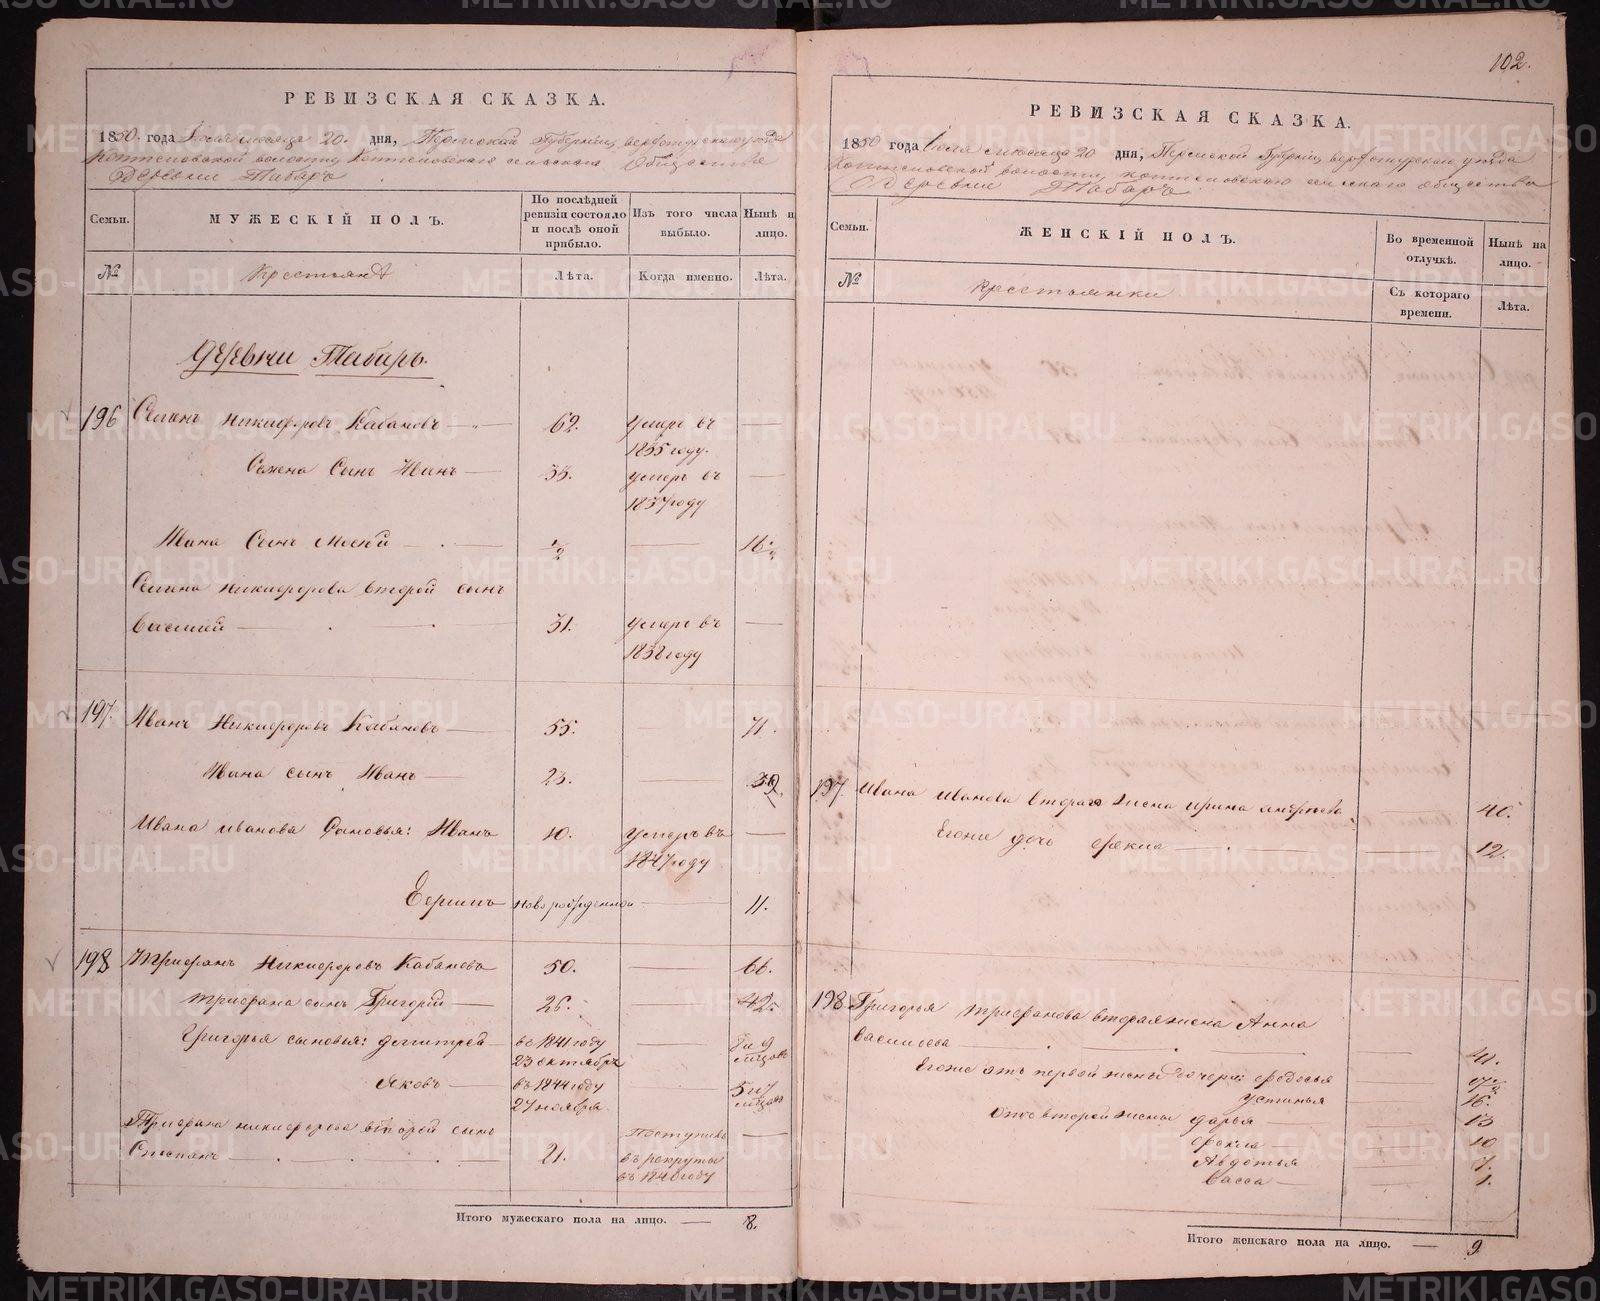 102.
РЕВИЗСКАЯ СКАЗКА.
1850 года Іюля месяца 20 дня, Пермской Губерніи, верхотурскаго уезда
Коптеловской волости, Коптеловскаго сельскаго Общества
Деревни Табаръ
Семьи.
МУЖЕСКІЙ ПОЛЪ.
По послѣдней ревизіи состояло и послѣ оной прибыло.
Изъ того числа выбыло.
Нынѣ на лицо.
№
Крестьянъ
Лѣта.
Когда именно.
Лѣта.
Деревни Табаръ.
196 Никифоровъ Кабаковъ 62. умеръ въ 1835 году.
сынъ Иванъ 33. умеръ въ 1837 году
Ивана Сынъ 1/2 16 1/2
Никифорова второй сынъ
Василий 31. умеръ въ 1838 году
197. Иванъ Никифоровъ Кабаковъ 55. 71.
Ивана сынъ Иванъ 23. 39.
Ивана иванова Сыновья: Иванъ 10. умеръ въ 1847 году
новорожденной 11.
198 Трифанъ Никифоровъ Кабаковъ 50. 66.
Трифана сынъ Григорій 26. 42.
Григорья сыновья: Дмитрей въ 1841 году 23 октября 8 и 9 мѣсяцовъ
Яковъ въ 1844 году 27 ноября 5 и 7 мѣсяцовъ
Трифана никифорова второй сынъ
Степанъ 21. Поступилъ въ рекруты въ 1840 году
Итого мужескаго пола на лицо. — 8.
РЕВИЗСКАЯ СКАЗКА.
1850 года Іюля месяца 20 дня, Пермской Губерніи верхотурскаго уезда
Коптеловской волости, коптеловскаго сельскаго общества
Деревни Табаръ
Семьи.
ЖЕНСКІЙ ПОЛЪ.
Во временной отлучкѣ.
Нынѣ на лицо.
№
Крестьянки
Съ котораго времени.
Лѣта.
197. Ивана иванова втораго жена ирина 40.
Егоже дочь фекла 12.
198 Григорья трифанова вторая жена Анна
васильева 41.
Егоже отъ первой жены дочери: федосья 17 1/2
устинья 16.
Ото второй жены дарья 13
фекла 10
Авдотья 7.
васса 1.
Итого женскаго пола на лицо. — 9
METRIKI.GASO-URAL.RU